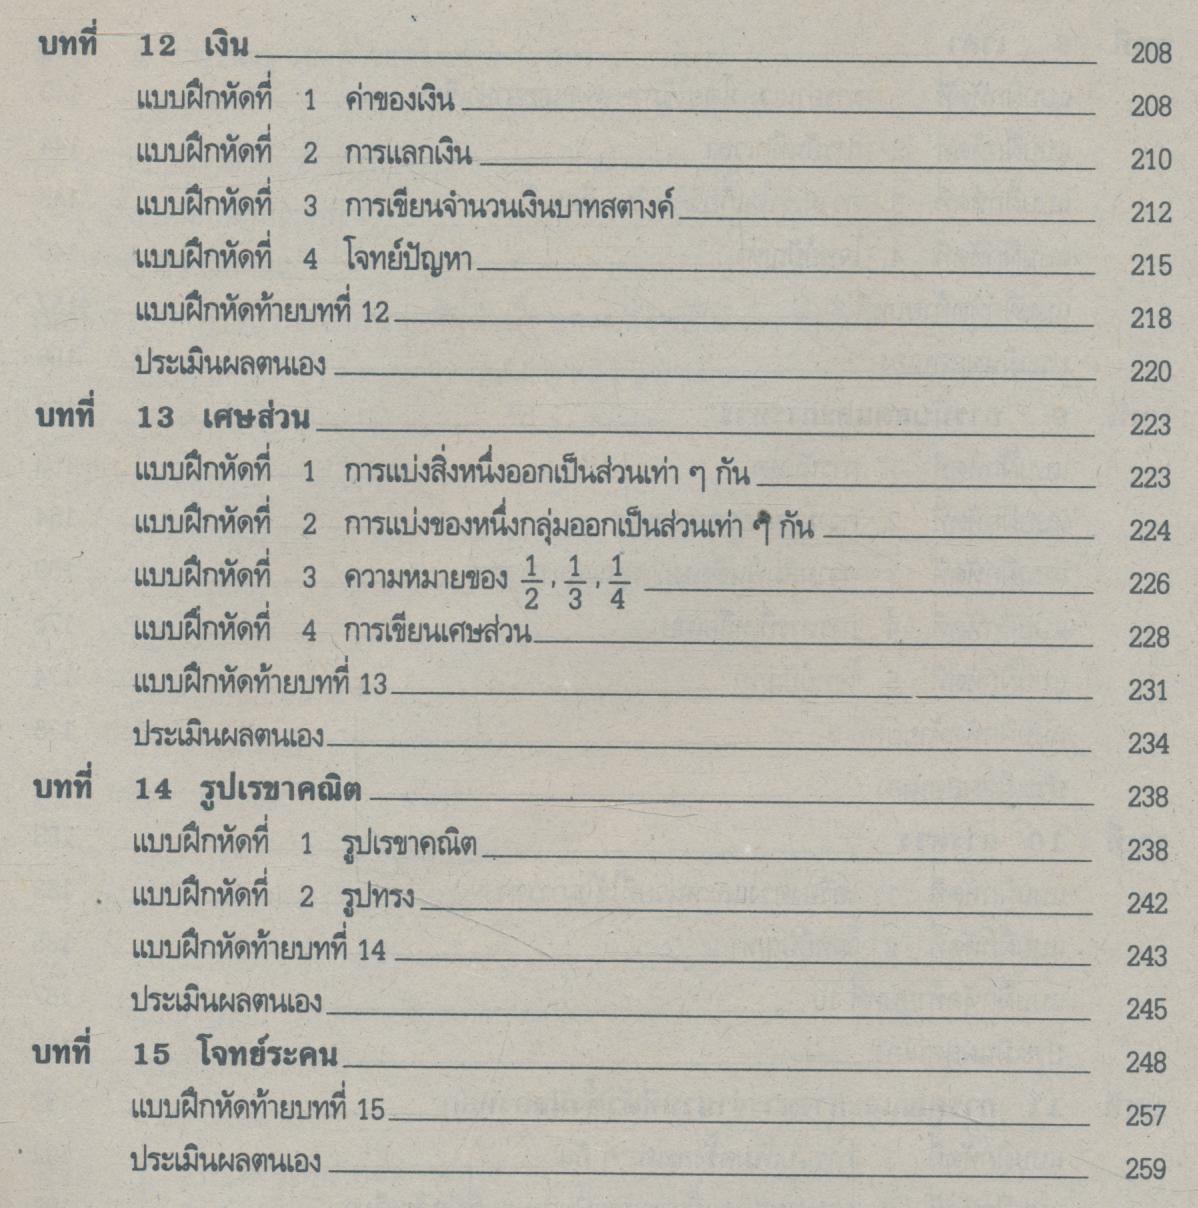 บทที่ 12 เงิน 208
แบบฝึกหัดที่ 1 ค่าของเงิน 208
แบบฝึกหัดที่ 2 การแลกเงิน 210
แบบฝึกหัดที่ 3 การเขียนจำนวนเงินบาทสตางค์ 212
แบบฝึกหัดที่ 4 โจทย์ปัญหา 215
แบบฝึกหัดท้ายบทที่ 12 218
ประเมินผลตนเอง 220
บทที่ 13 เศษส่วน 223
แบบฝึกหัดที่ 1 การแบ่งสิ่งหนึ่งออกเป็นส่วนเท่า ๆ กัน 223
แบบฝึกหัดที่ 2 การแบ่งของหนึ่งกลุ่มออกเป็นส่วนเท่า ๆ กัน 224
แบบฝึกหัดที่ 3 ความหมายของ 1/2, 1/3, 1/4 226
แบบฝึกหัดที่ 4 การเขียนเศษส่วน 228
แบบฝึกหัดท้ายบทที่ 13 231
ประเมินผลตนเอง 234
บทที่ 14 รูปเรขาคณิต 238
แบบฝึกหัดที่ 1 รูปเรขาคณิต 238
แบบฝึกหัดที่ 2 รูปทรง 242
แบบฝึกหัดท้ายบทที่ 14 243
ประเมินผลตนเอง 245
บทที่ 15 โจทย์ระคน 248
แบบฝึกหัดท้ายบทที่ 15 257
ประเมินผลตนเอง 259